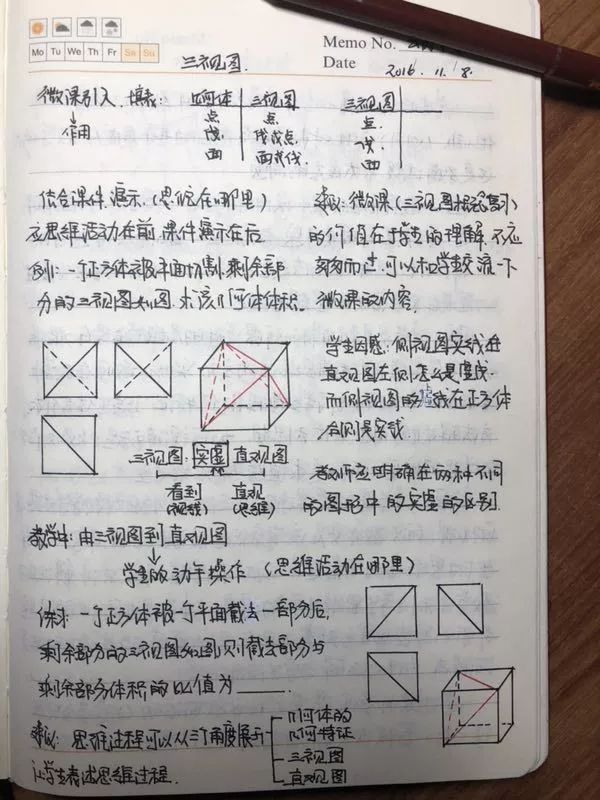 Mo Tu We Th Fr Sa Su
Memo No.
Date 2016. 11. 8.
三视图.
微课引入. 填表: 几何体 三视图 三视图
作用
点 点 点.
线 线或点. 线.
面 面或线. 面
结合课件展示(思维在哪里)
应思维活动在前,课件展示在后
例: 一个正方体被平面切割,剩余部
分的三视图如图.求该几何体体积.
建议: 微课(三视图概念展示)
的价值在于学生的理解.不应
匆匆而过.可以和学生交流一下
微课的内容.
学生困惑: 侧视图实线在
直观图左侧怎么是虚线.
而侧视图的虚线在正方体
右侧是实线
三视图. 实虚 直观图
看到 直观
(视线) (思维)
教师应明确在两种不同
的图形中的实虚的区别.
教学中: 由三视图到直观图
学生的动手操作 (思维活动在哪里)
练习: 一个正方体被一个平面截去一部分后,
剩余部分的三视图如图,则截去部分与
剩余部分体积的比值为______.
建议: 思维过程可以从三个角度展开
让学生表述思维过程.
几何体的
几何特征
三视图
直观图